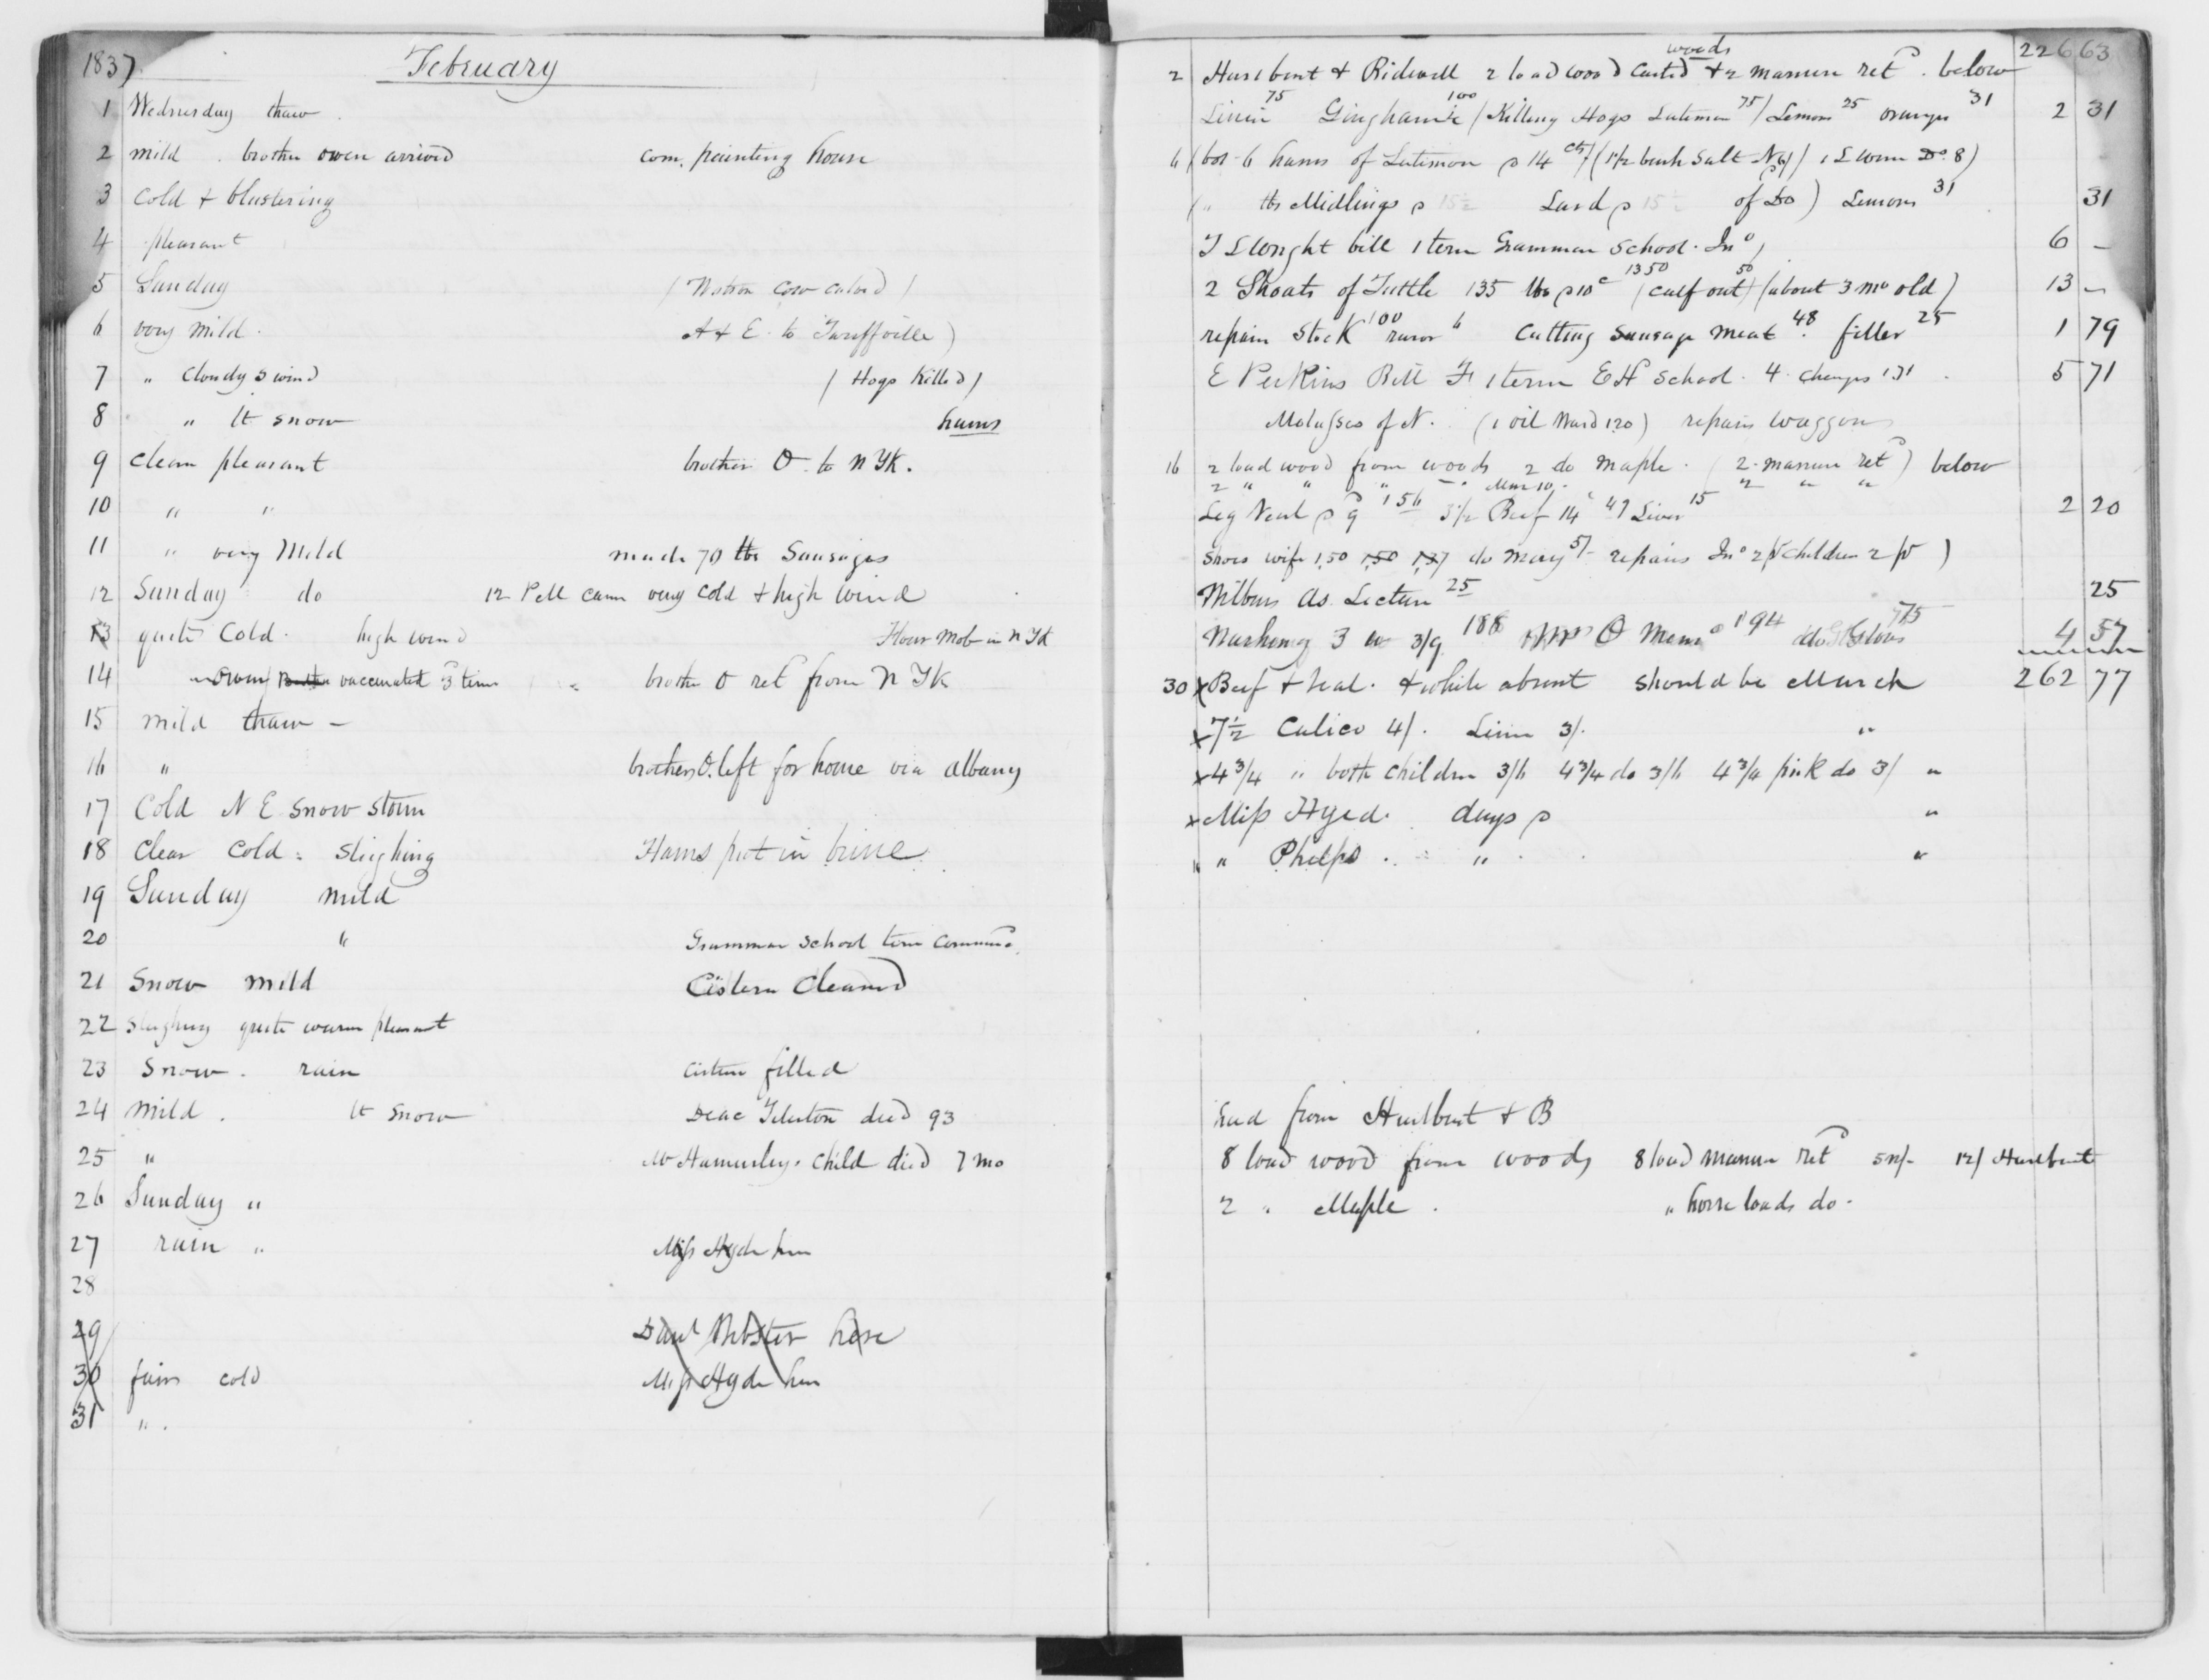 1837 February
1 Wednesday thaw
2 mild . brother owen arrived com. painting house
3 Cold + blustering
4 pleasant
5 Sunday ( cow calvd )
6 very mild . A + E. to Tariffville )
7 " Cloudy S wind ( Hogs Killed )
8 " lt snow hams
9 Clear pleasant brother O. to N YK.
10 " "
11 " very Mild made 70 lbs Sausages
12 Sunday do 12 Pell came very cold + high wind
13 quite Cold . high wind Flour Mob in N YK
14 Owen vaccinated 3 time brother O ret from N YK
15 mild thaw –
16 " brother O. left for home via Albany
17 Cold N E Snow Storm
18 Clear Cold : Sleighing Hams put in brine
19 Sunday mild
20 " Grammar School term commenc.
21 Snow mild Cistern Cleaned
22 Sleighing quite warm pleasant
23 Snow . rain Cistern filled
24 mild . lt snow Deac died 93
25 " Mr child died 7 mo
26 Sunday "
27 rain " Miss Hyde here
28
29 Danl Webster here
30 fair cold Miss Hyde here
31 " .
226 63
woods
2 Hurlbut + Ridwell 2 load wood Carted + 2 manure ret. below
Linin 75 Gingham 100 / Killing Hogs Lutimon 75 / Lemons 25 oranges 31 2 31
6 ( bot 6 hams of Lutimon p 14 cts ) ( 1 1/2 bush Salt ) 8 )
( " lbs Midlings p 15 1/2 Lard p 15 of Do ) Lemons 31 31
bill 1 term Grammar School . Jno 6 –
2 Shoats of Tuttle 135 lbs p 10 c 1350 ( calf out 50 ) ( about 3 mo old ) 13 –
repair Stock 100 razor 6 Cutting Sausage Meat 48 . filler 25 1 79
E Perkins Bill F 1 term E H School . 4 . Charges 131 . 5 71
Molasses of N. ( 1 oil Ward 120 ) repairs waggon
16 2 load wood from woods 2 do maple . ( 2 . manure ret ) below
2 " " " Mar 10 . 2 " "
Leg Veal p 9 156 3 1/2 Beef 14 c 49 Liver 15 2 20
Shoes wife 1.50 1.50 1.37 do Mary 5/- repairs Jno children )
As. Lecture 25 25
3 3/9 188 O 194 do Gloves 75 4 57
30 x Beef + Veal . + while absent should be March 262 77
x 7 1/2 Calico 4/. Linin 3/. "
x 4 3/4 " both children 3/6 4 3/4 do 3/6 4 3/4 pink do 3/ "
x Miss Hyde. days p "
" " Phelps . " . "
had from Hurlbut + B
8 load wood from woods 8 load manure ret 12/ Hurlbut
2 " Maple . " horse loads do .